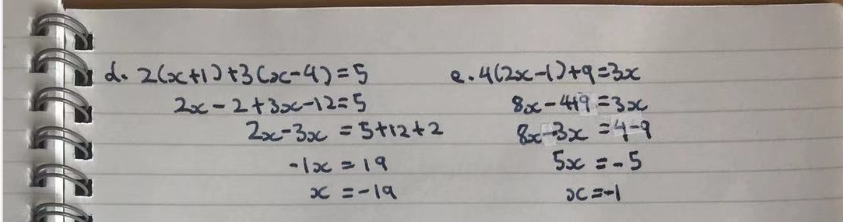 d. 2(x+1)+3(x-4)=5
2x-2+3x-12=5
2x-3x=5+12+2
-1x=19
x=-19
e. 4(2x-1)+9=3x
8x-4+9=3x
8x-3x=4-9
5x=-5
x=-1